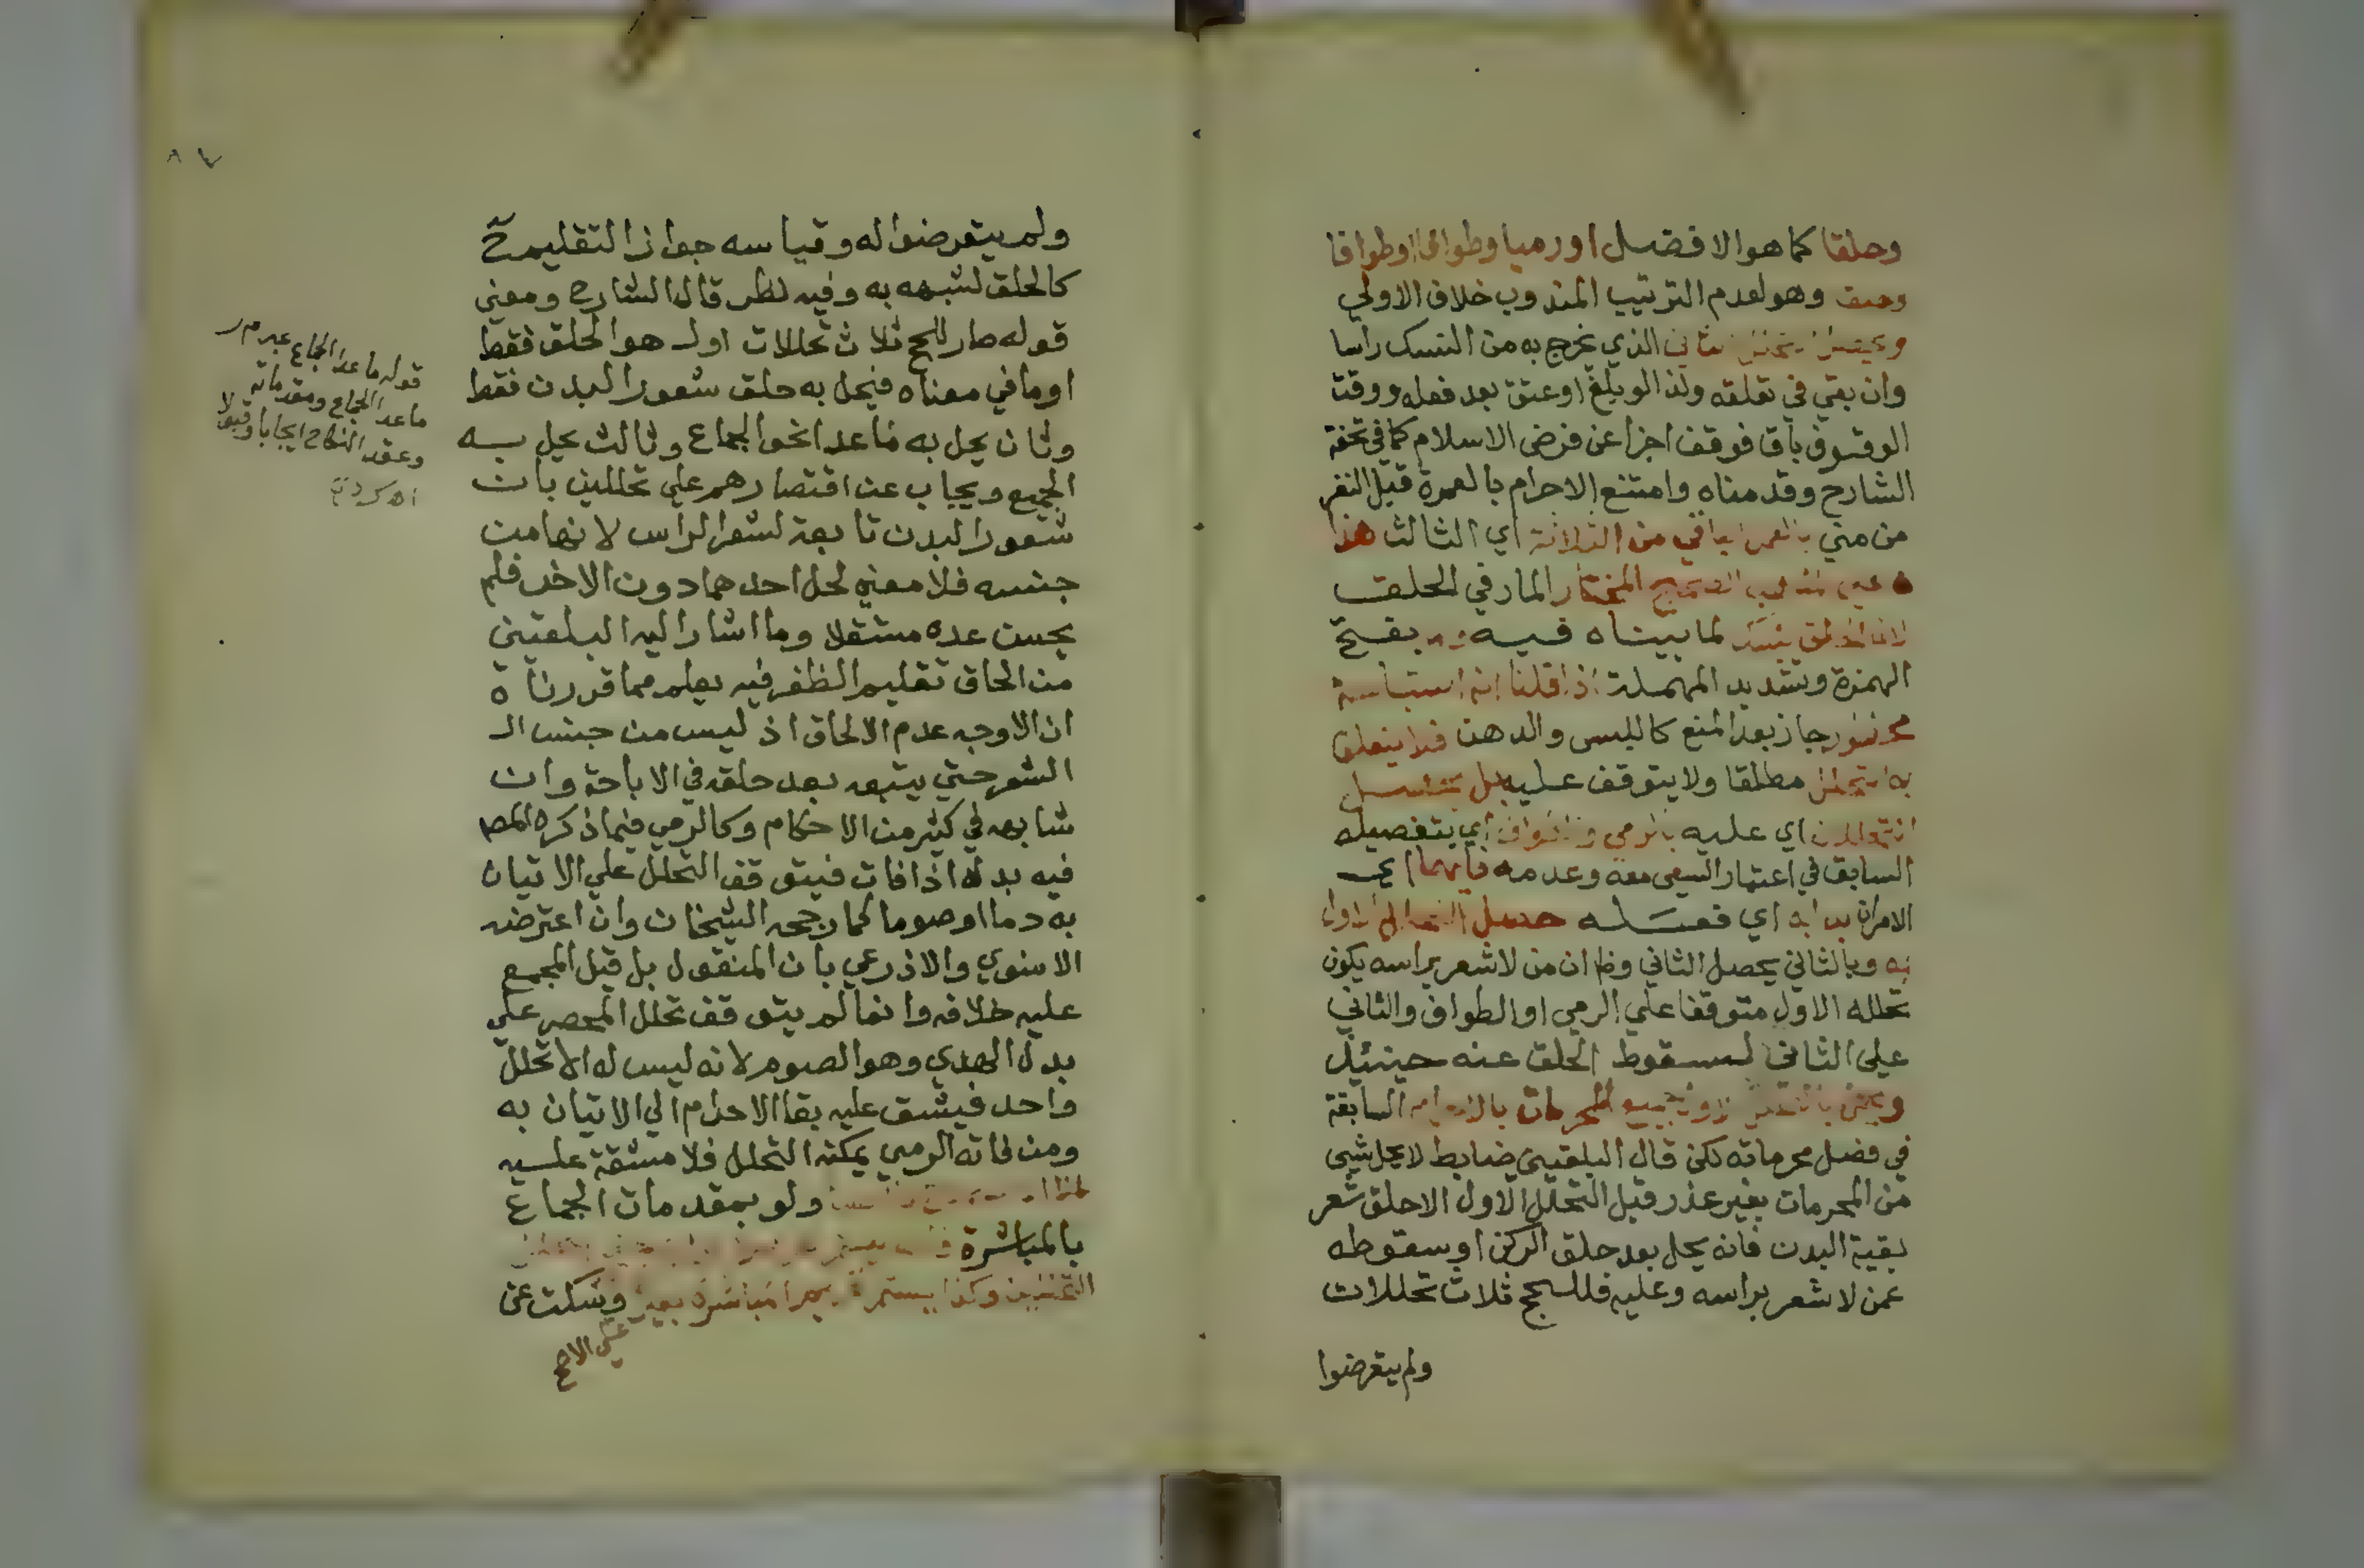 وحلقا كما هو الافضل او رميا وطوافا او طوافا
وحلقا وهو لعدم الترتيب المندوب خلاف الاولي
الثاني الذي يخرج به من النسك راسا
وان بقي في تعلقه ولذا لو بلغ او عتق بعد فعله ووقت
الوقوف باق فوقف اجزا عن فرض الاسلام كما في تحفة
الشارح وقدمناه وامتنع الاحرام بالعمرة قبل النفر
من مني بالعمل الباقي من الثلاثة اي الثالث هذا
الصحيح المختار المار في الحلق
لما بيناه فيه بفتح
الهمزة وتشديد المهملة اذا قلنا انه استباحة
محظور جاز بعد المنع كاللبس والدهن فلا يتعلق
به التحلل مطلقا ولا يتوقف عليه بل يحصل
التحللان اي عليه بالرمي والطواف اي بتفصيله
السابق في اعتبار السعي معه وعدمه فايهما اي
الامران بدا به اي فعله حصل التحلل الاول
به وبالثاني يحصل الثاني وظ ان من لا شعر براسه يكون
تحلله الاول متوقفا علي الرمي او الطواف والثاني
علي الثاني لسقوط الحلق عنه حينئذ
جميع المحرمات بالاحرام السابقة
في فصل محرماته لكن قال البلقيني ضابط لا يحل شي
من المحرمات بغير عذر قبل التحلل الاول الا حلق شعر
بقية البدن فانه يحل بعد حلق الركن او سقوطه
عمن لا شعر براسه وعليه فللحج ثلاث تحللات
ولم يتعرضوا
ولم يتعرضوا له وقياسه جواز التقليم ح
كالحلق لشبهه به وفيه نظر قال الشارح ومعني
قوله صار للحج ثلاث تحللات اول هو الحلق فقط
او ما في معناه فيحل به حلق شعور البدن فقط
وثان يحل به ما عدا نحو الجماع وثالث يحل به
الجميع ويجاب عن اقتصارهم علي تحللين بان
شعور البدن تابعة لشعر الراس لانها من
جنسه فلا معني لحل احدهما دون الاخر فلم
يحسن عده مستقلا وما اشار اليه البلقيني
من الحاق تقليم الظفر فيه يعلم مما قررناه
ان الاوجه عدم الالحاق اذ ليس من جنس الـ
الشعر حتي يتبعه بعد حلقه في الاباحة وان
شابهه في كثير من الاحكام وكالرمي فيما ذكره المصـ
فيه بدله اذا فات فيتوقف التحلل علي الاتيان
به دما او صوما كما رجحه الشيخان وان اعترضه
الاسنوي والاذرعي بان المنقول بل قيل المجمع
عليه خلافه وانما لم يتوقف تحلل المحصر علي
بدل الهدي وهو الصوم لانه ليس له الا تحلل
واحد فيشق عليه بقا الاحرام الي الاتيان به
ومن فاته الرمي يمكنه التحلل فلا مشقة عليه
ولو بمقدمات الجماع
بالمباشرة
التحللين وكذا يستمر المباشرة بغير وسكت عن
علي الاصح
قوله ما عدا الجماع عبر م ر
ما عدا الجماع ومقدماته
وعقد النكاح ايجابا وقبولا
اه كردي